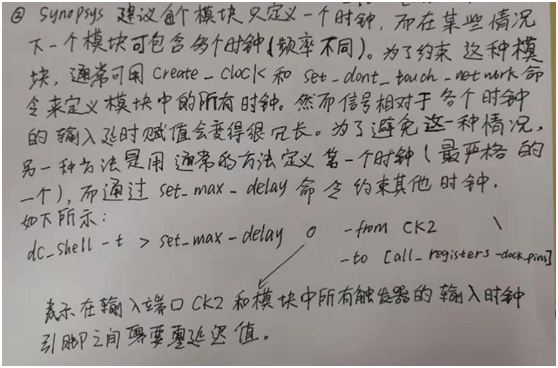 ② Synopsys 建议每个模块只定义一个时钟,而在某些情况
下一个模块可包含多个时钟(频率不同)。为了约束这种模
块,通常可用 Create_clock 和 set_dont_touch_network 命
令来定义模块中的所有时钟。然而信号相对于各个时钟
的输入延时赋值会变得很冗长。为了避免这一种情况,
另一种方法是用通常的方法定义第一个时钟(最严格的
一个),而通过 set_max_delay 命令约束其他时钟.
如下所示:
dc_shell-t > set_max_delay 0 -from CK2 \
-to [all_registers -clock_pins]
表示在输入端口CK2和模块中所有触发器的输入时钟
引脚之间需要零延迟值。